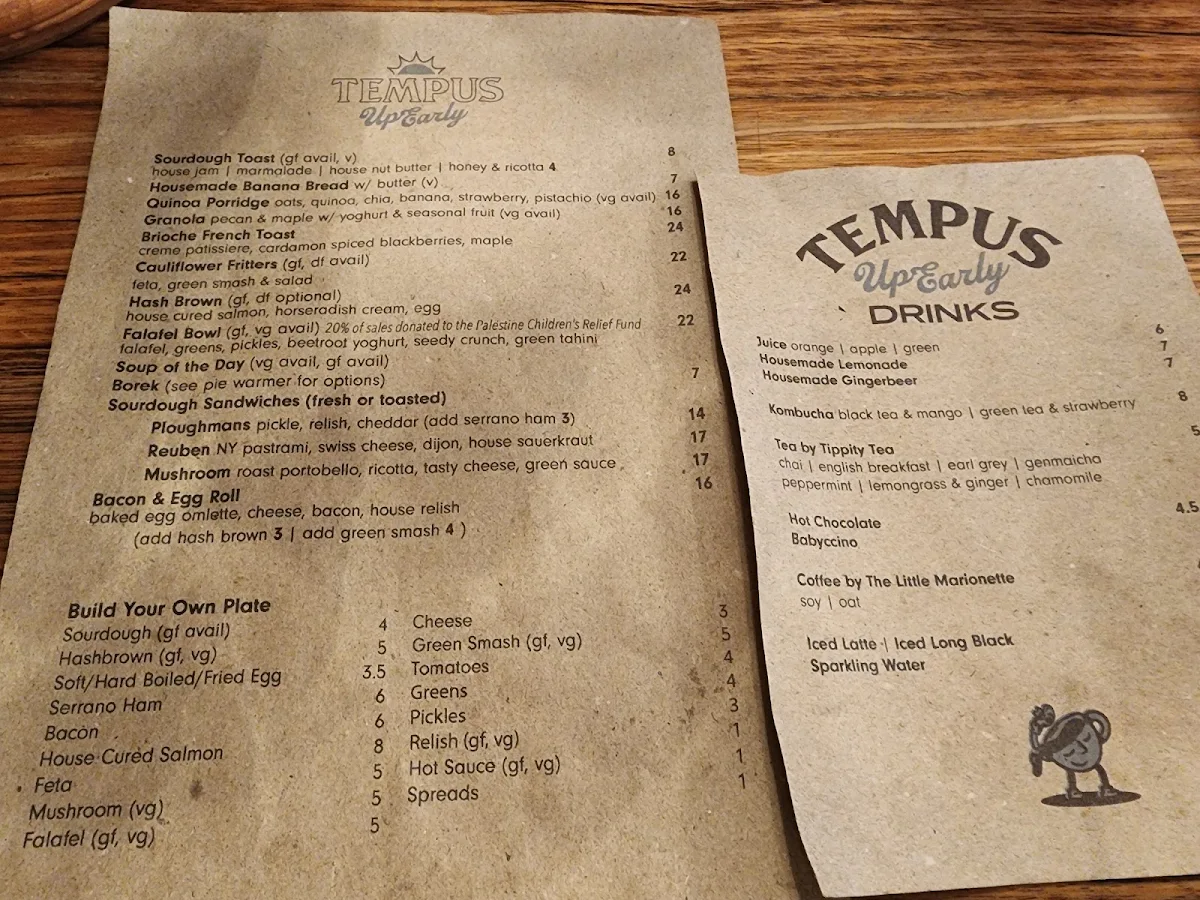 TEMPUS
UpEarly
Sourdough Toast (gf avail, v) 8
house jam | marmalade | house nut butter | honey & ricotta 4
Housemade Banana Bread w/ butter (v) 7
Quinoa Porridge oats, quinoa, chia, banana, strawberry, pistachio (vg avail) 16
Granola pecan & maple w/ yoghurt & seasonal fruit (vg avail) 16
Brioche French Toast 24
creme patissiere, cardamon spiced blackberries, maple
Cauliflower Fritters (gf, df avail) 22
feta, green smash & salad
Hash Brown (gf, df optional) 24
house cured salmon, horseradish cream, egg
Falafel Bowl (gf, vg avail) 20% of sales donated to the Palestine Children's Relief Fund 22
falafel, greens, pickles, beetroot yoghurt, seedy crunch, green tahini
Soup of the Day (vg avail, gf avail)
Borek (see pie warmer for options) 7
Sourdough Sandwiches (fresh or toasted)
Ploughmans pickle, relish, cheddar (add serrano ham 3) 14
Reuben NY pastrami, swiss cheese, dijon, house sauerkraut 17
Mushroom roast portobello, ricotta, tasty cheese, green sauce 17
Bacon & Egg Roll 16
baked egg omlette, cheese, bacon, house relish
(add hash brown 3 | add green smash 4 )
Build Your Own Plate
Sourdough (gf avail) 4
Hashbrown (gf, vg) 5
Soft/Hard Boiled/Fried Egg 3.5
Serrano Ham 6
Bacon 6
House Cured Salmon 8
Feta 5
Mushroom (vg) 5
Falafel (gf, vg) 5
Cheese 3
Green Smash (gf, vg) 5
Tomatoes 4
Greens 4
Pickles 3
Relish (gf, vg) 1
Hot Sauce (gf, vg) 1
Spreads 1
TEMPUS
UpEarly
DRINKS
Juice orange | apple | green 6
Housemade Lemonade 7
Housemade Gingerbeer 7
Kombucha black tea & mango | green tea & strawberry 8
Tea by Tippity Tea 5
chai | english breakfast | earl grey | genmaicha
peppermint | lemongrass & ginger | chamomile
Hot Chocolate 4.5
Babyccino
Coffee by The Little Marionette
soy | oat
Iced Latte | Iced Long Black
Sparkling Water